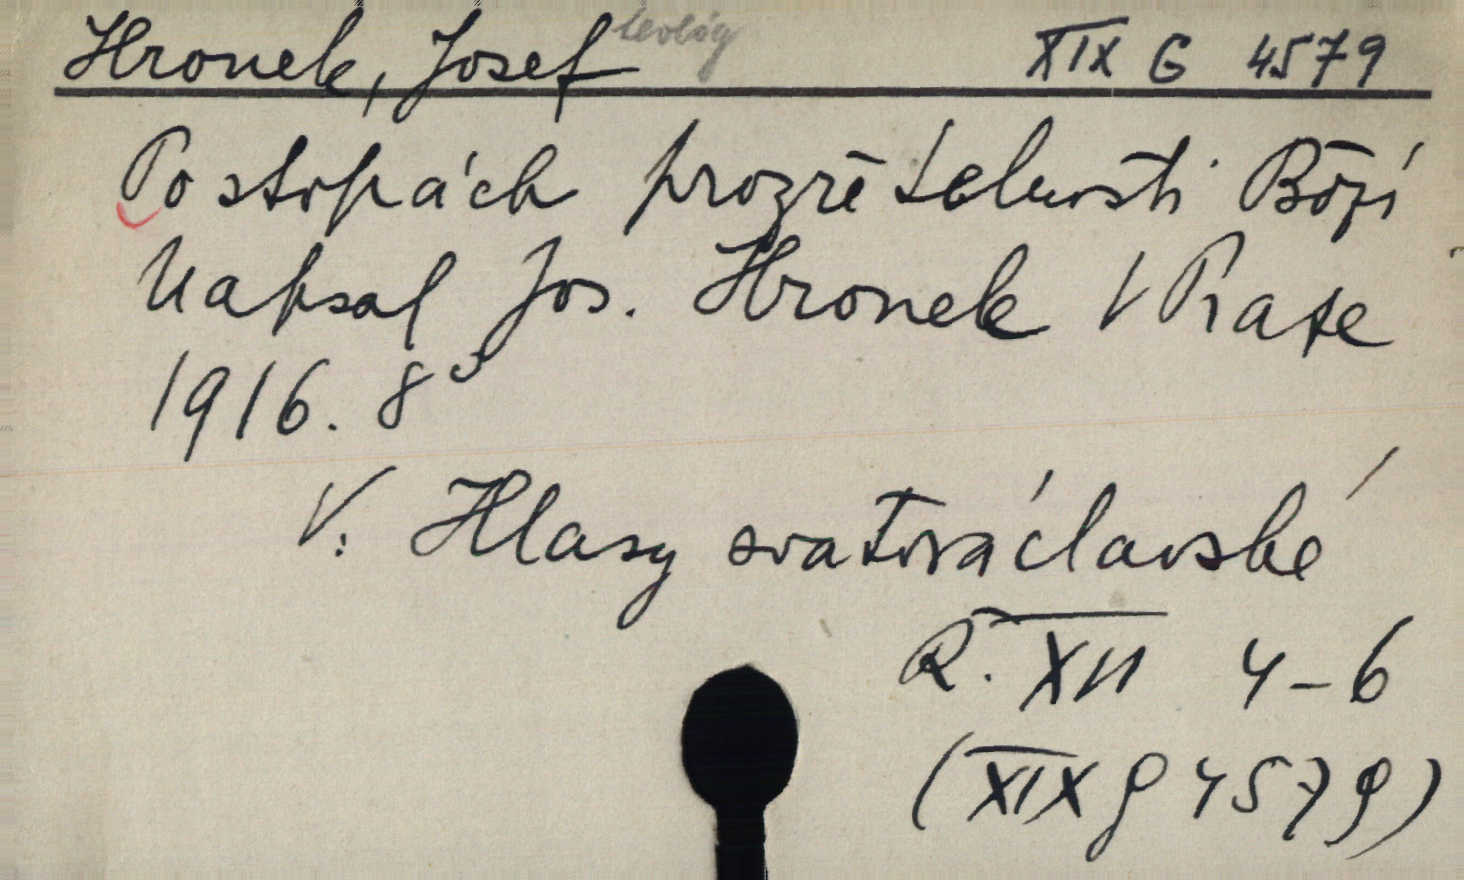 Hronek, Josef teolog XIX G 4579
Po stopách prozřetelnosti Boží
Napsal Jos. Hronek V Praze
1916. 8°
V: Hlasy svatováclavské
R. XII 4-6
(XIX g 4579)